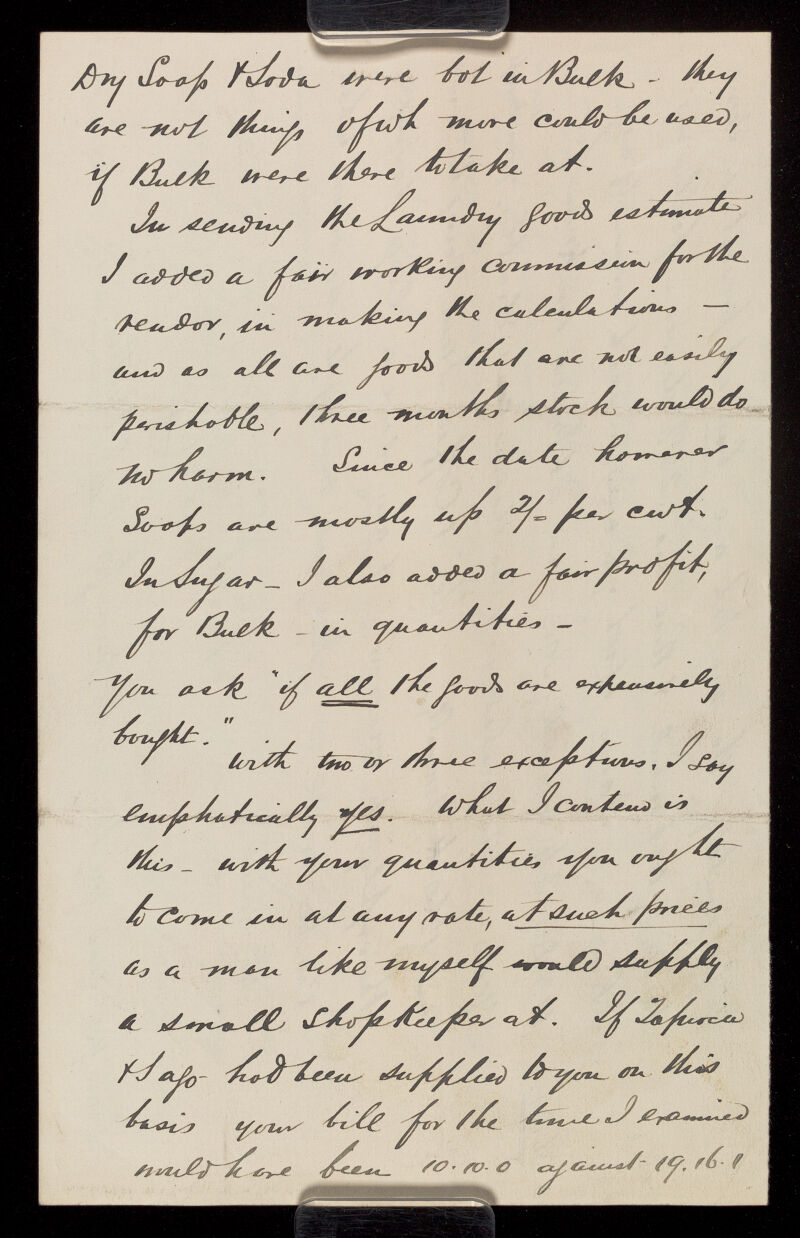 Dry Soap & Soda were bot in Bulk - they
are not things of wh more could be used,
if Bulk were there to take at.
In sending the Laundry goods estimate
I added a fair working commission for the
vendor, in making the calculations -
and as all are goods that are not easily
perishable, three months stock would do
no harm. Since the date however
Soaps are mostly up 2/= per cwt.
In Sugar - I also added a fair profit,
for Bulk - in quantities -
You ask "if all the goods are expensively
bought."
with two or three exceptions. I say
emphatically yes. What I contend is
this - with your quantities you ought
to come in at any rate, at such prices
as a man like myself would supply
a small shopkeeper at. If Tapioca
& Sago had been supplied to you on this
basis your bill for the time I examined
would have been 10.10.0 against 19.16.1